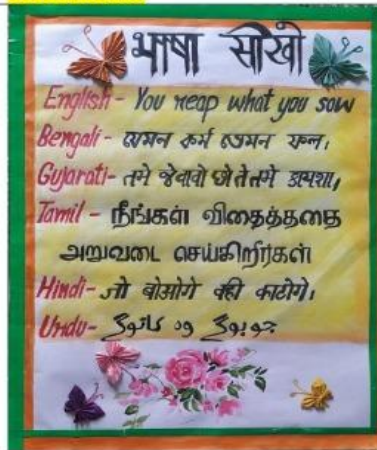 भाषा सीखो
English - You reap what you sow
Bengali - যেমন কর্ম তেমন ফল।
Gujarati - તમે જેવાવો છો તે તમે
Tamil - நீங்கள் விதைத்ததை
அறுவடை செய்கிறீர்கள்
Hindi - जो बोओगे वही काटोगे।
Urdu - جو بوؤگے وہ کاٹوگے